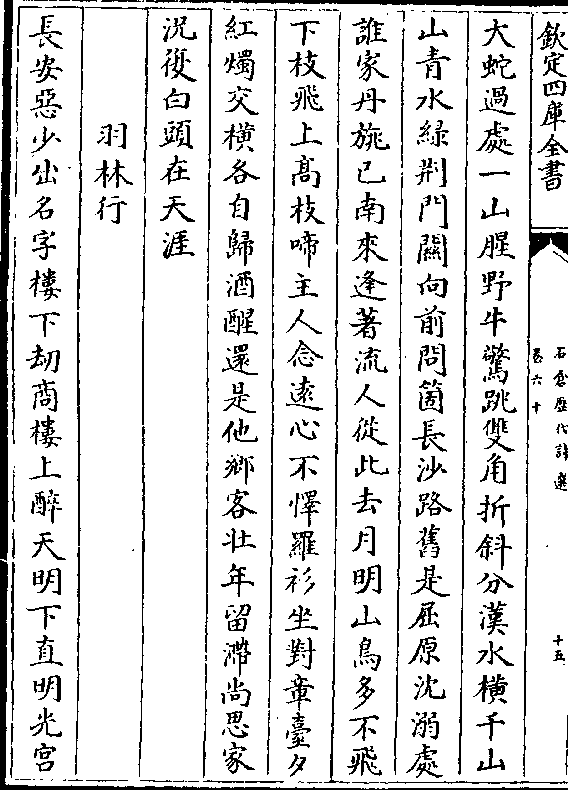 欽定四庫全書
石倉歷代詩選
卷六十
十五
大蛇過處一山腥野牛驚跳雙角折斜分漢水橫千山
山青水綠荆門關向前問箇長沙路舊是屈原沈溺處
誰家丹旐已南來逢著流人從此去月明山鳥多不飛
下枝飛上高枝啼主人念逺心不懌羅衫坐對章臺夕
紅燭交橫各自歸酒醒還是他鄉客壯年留滯尚思家
況復白頭在天涯
羽林行
長安惡少出名字樓下劫商樓上醉天明下直明光宫